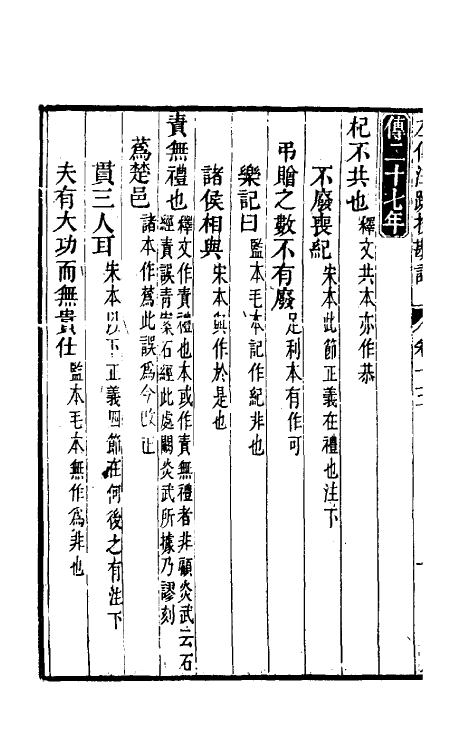 左傳注疏校勘記 卷十三
傳二十七年
杞不共也釋文共本亦作恭
不廢喪紀宋本此節正義在禮也注下
弔贈之數不有廢足利本有作可
樂記曰監本毛本記作紀非也
諸侯相與宋本與作於是也
責無禮也釋文作責禮也本或作責無禮者非顧炎武云石經責誤青案石經此處闕炎武所據乃謬刻
蒍楚邑諸本作蒍此誤爲今改正
貫三人耳宋本以下正義四節在何後之有注下
夫有大功而無貴仕監本毛本無作爲非也